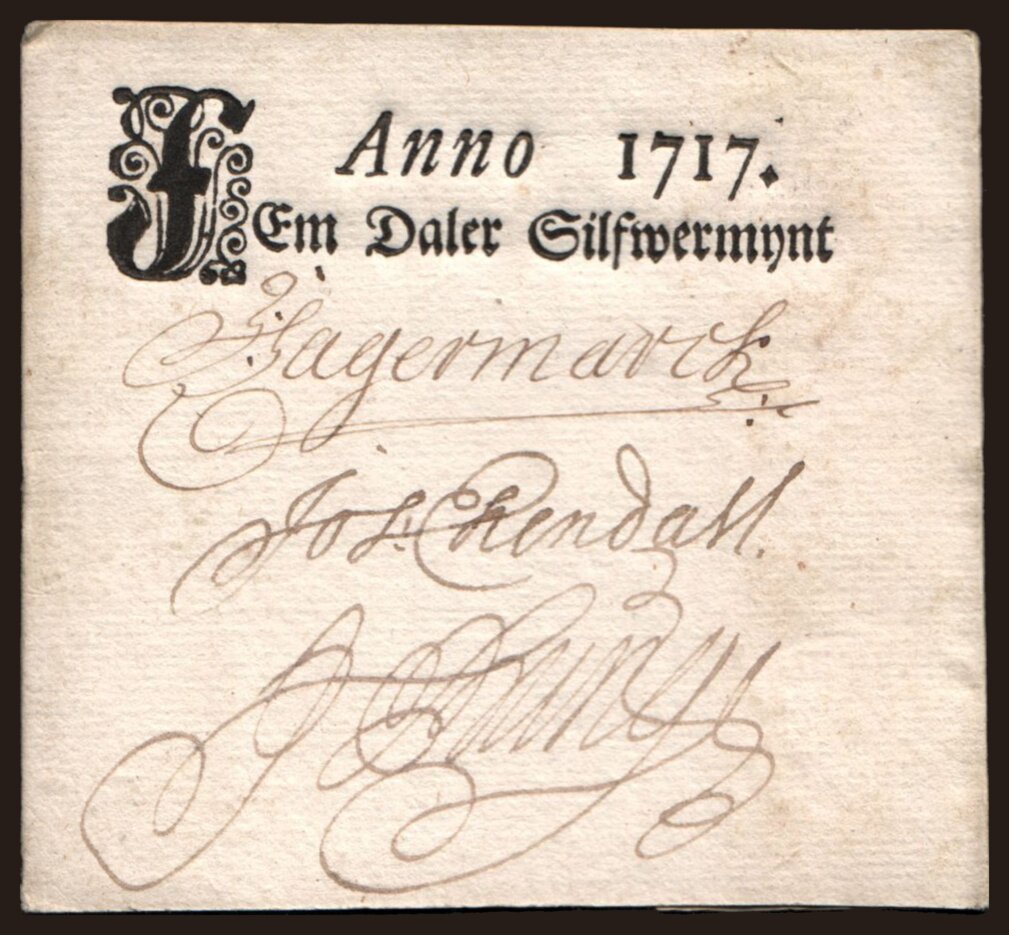 Anno 1717.
fEm Daler Silfwermynt
Jagermarck
Jos: Kendall.